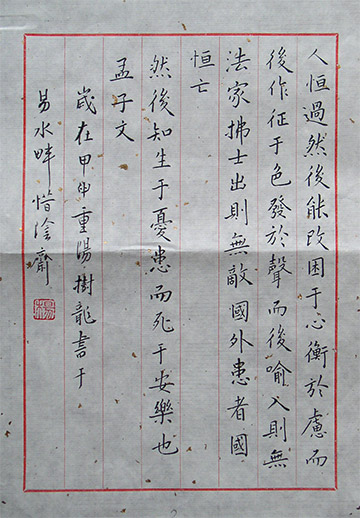 人恒過然後能改困于心衡於慮而
後作征于色發於聲而後喻入則無
法家拂士出則無敵國外患者國
恒亡
然後知生于憂患而死于安樂也
孟子文
歲在甲申重陽樹龍書于
易水畔惜陰齋